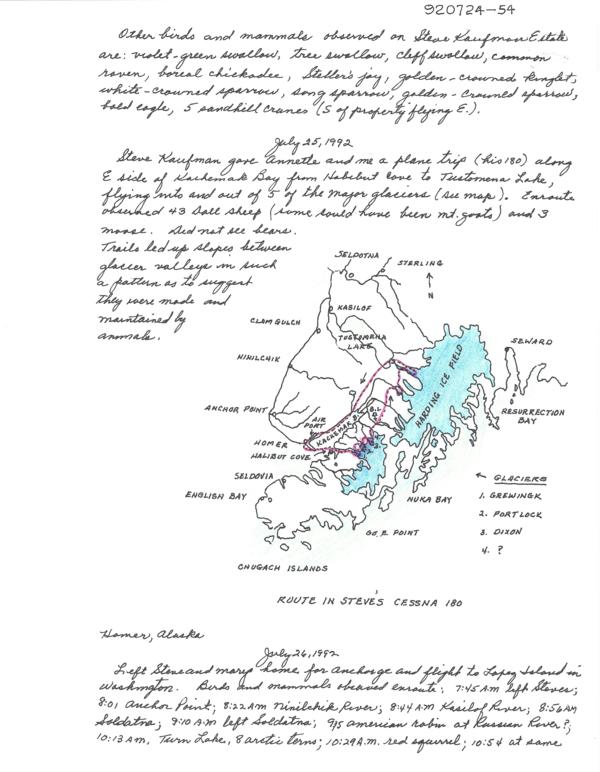 920724-54
Other birds and mammals observed on Steve Kaufman Estate
are: violet-green swallow, tree swallow, cliff swallow, common
raven, boreal chickadee, Steller's jay, golden-crowned kinglet,
white-crowned sparrow, song sparrow, golden-crowned sparrow,
bald eagle, 5 sandhill cranes (S of property flying E.).
July 25, 1992
Steve Kaufman gave Annette and me a plane trip (his 180) along
E side of Kachemak Bay from Halibut Cove to Tustomena Lake,
flying into and out of 5 of the major glaciers (see map). Enroute
observed 43 Dall sheep (some could have been mt. goats) and 3
moose. Did not see bears.
Trails led up slopes between
glacier valleys in such
a pattern as to suggest
they were made and
maintained by
animals.
SELDOTNA
STERLING
N
KASILOF
CLAM GULCH
TUSTOMENA
LAKE
NINILCHIK
SEWARD
HARDING ICE FIELD
RESURRECTION
BAY
ANCHOR POINT
AIR
PORT
KACHEMAK B.
HOMER
HALIBUT COVE
SELDOVIA
ENGLISH BAY
NUKA BAY
GORE POINT
CHUGACH ISLANDS
GLACIERS
1. GREWINGK
2. PORTLOCK
3. DIXON
4. ?
ROUTE IN STEVE'S CESSNA 180
Homer, Alaska
July 26, 1992
Left Steve and marys home for Anchorge and flight to Lopez Island in
Washington. Birds and mammals observed enroute: 7:45 AM left Steves;
8:01 Anchor Point; 8:22 AM Ninilchik River; 8:44 AM Kasilof River; 8:56 AM
Soldatna; 9:10 A.M left Soldatna; 915 American robin at Russian River?;
10:13 AM, Turn Lake, 8 arctic terns; 10:29 A.M. red squirrel; 10:54 at same